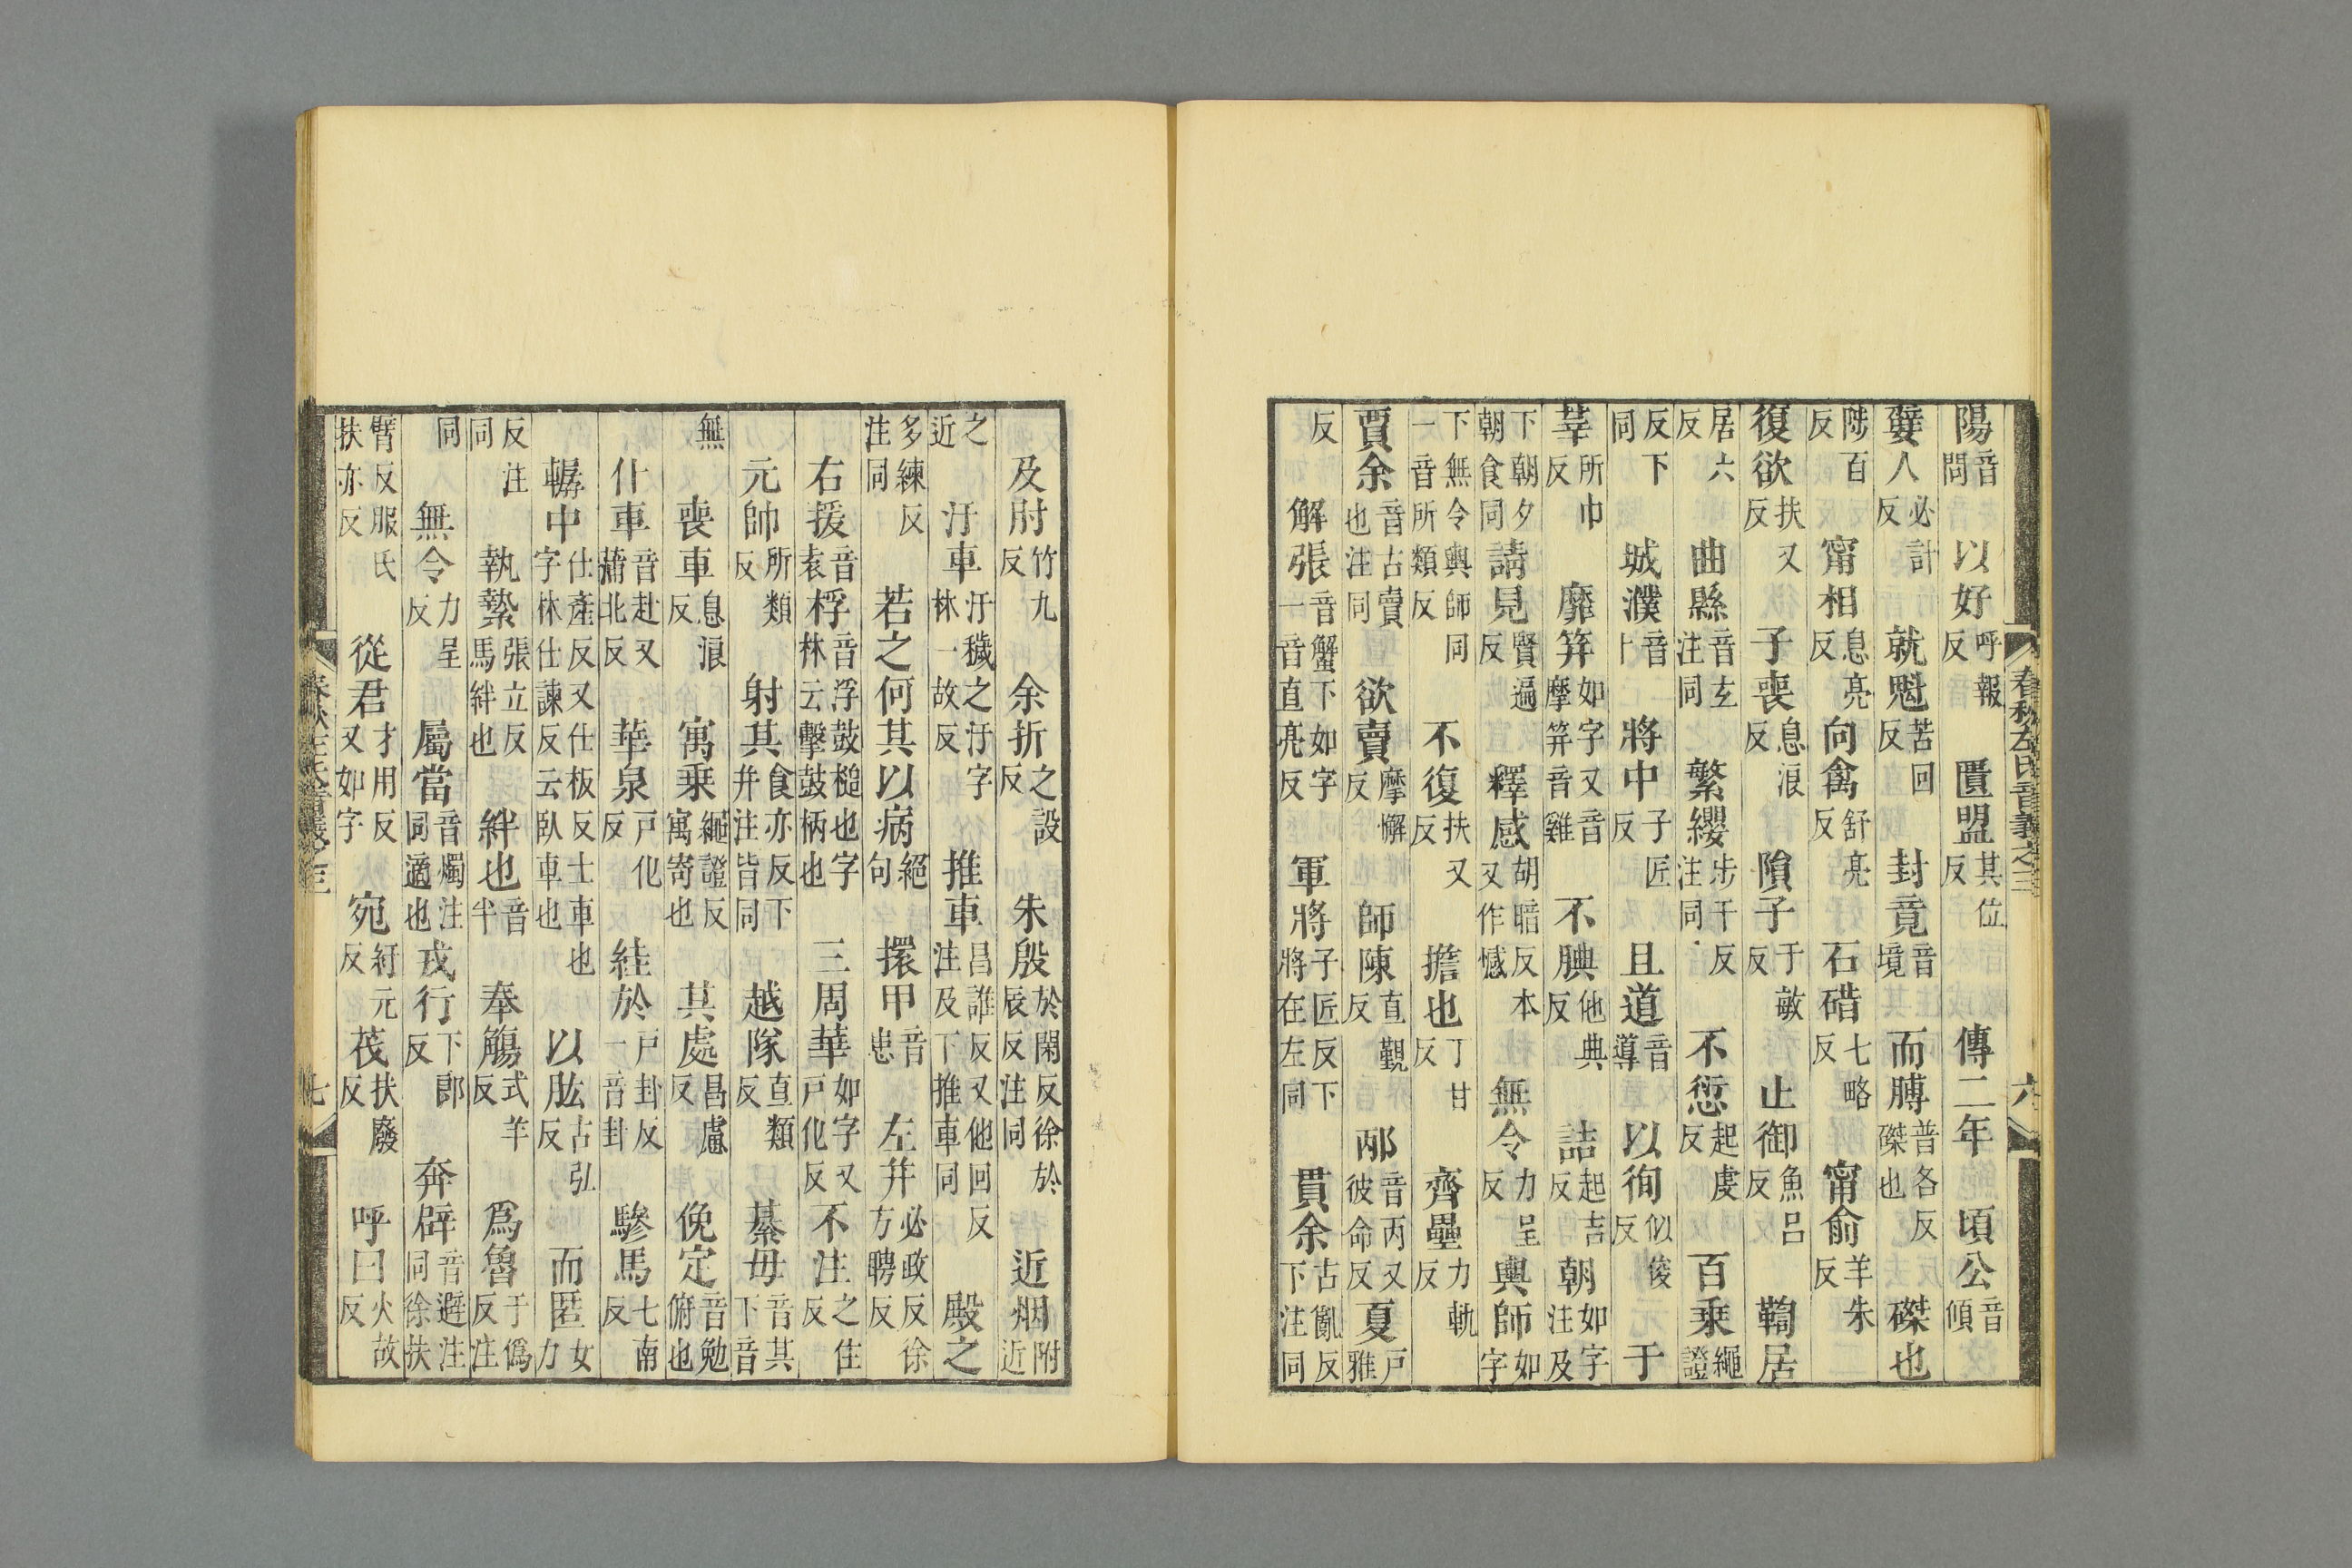 春秋左氏音義之三 六
陽音問 以好呼報反 匱盟其位反 傳二年 頃公音傾
嬖人必計反 就魁苦回反 封竟音境 而膊普各反磔也 磔也
陟百反 甯相息亮反 向禽舒亮反 石碏七略反 甯俞羊朱反
復欲扶又反 子喪息浪反 隕子于敏反 止御魚呂反 鞫居
居六反 曲縣音玄注同 繁纓步干反注同 不愆起虔反 百乘繩證
反下同 城濮音卜 將中子匠反 且道音導 以徇似俊反 于
莘所巾反 靡笄如字又音摩笄音雞 不腆他典反 詰起吉反 朝如字注及
下朝夕朝食同 請見賢遍反 釋感胡暗反本又作憾 無令力呈反 輿師如字
下無令輿師同一音所類反 不復扶又反 擔也丁甘反 齊壘力軌反
賈余音古賣也注同 欲賣摩懈反 師陳直覲反 邴音丙又彼命反 夏戶雅
反 解張音蟹下如字一音直亮反 軍將子匠反下將在左同 貫余古亂反下注同
及肘竹九反 余折之設反 朱殷於閑反徐於辰反注同 近烟附近
之近 汙車汙穢之汙字林一故反 推車昌誰反又他回反注及下推車同 殿之
多練反注同 若之何其以病絕句 擐甲音患 左并必政反徐方聘反
右援音袁 桴音浮鼓槌也字林云擊鼓柄也 三周華如字又戶化反 不注之住反
元帥所類反 射其食亦反下并注皆同 越隊直類反 綦毋音其下音
無 喪車息浪反 寓乘繩證反寓寄也 其處昌慮反 俛定音勉俯也
仆車音赴又蒲北反 華泉戶化反 絓於戶卦反一音卦 驂馬七南反
轏中仕產反又仕板反士車也字林仕諫反云臥車也 以肱古弘反 而匿女力
反注同 執縶張立反馬絆也 絆也音半 奉觴式羊反 爲魯于僞反注
同 無令力呈反 屬當音燭注同適也 戎行下郎反 奔辟音避注同徐扶
臂反服氏扶亦反 從君才用反又如字 宛紆元反 茷扶廢反 呼曰火故反
春秋左氏音義之三 七